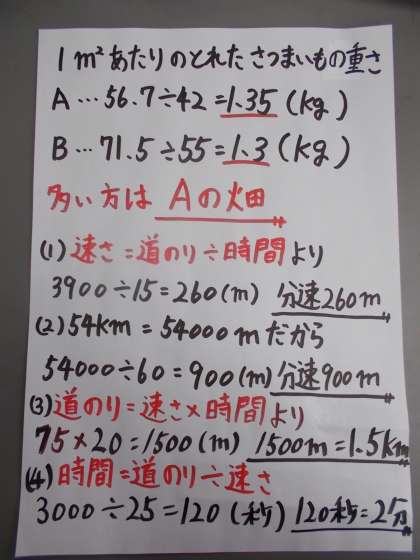 1m²あたりのとれたさつまいもの重さ
A…56.7÷42=1.35(kg)
B…71.5÷55=1.3(kg)
多い方は Aの畑
(1)速さ=道のり÷時間より
3900÷15=260(m) 分速260m
(2)54km=54000mだから
54000÷60=900(m) 分速900m
(3)道のり=速さ×時間より
75×20=1500(m) 1500m=1.5km
(4)時間=道のり÷速さ
3000÷25=120(秒) 120秒=2分